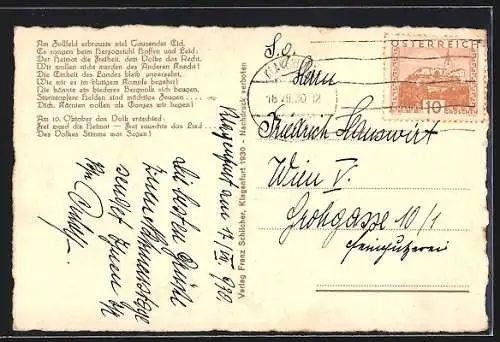 Am Zollfeld erbrauste viel Tausender Eid,
Es rangen beim Herzogstuhl Hoffen und Leid:
Der Heimat die Freiheit, dem Volke das Recht,
Wir wollen nicht werden des Anderen Knecht!
Die Einheit des Landes bleib unversehrt,
Wie wir es im blutigen Kampfe begehrt!
Nie könnte ein biederer Bergvolk sich beugen,
Sturmerprobte Helden sind mächtige Zeugen ...
Dich, Kärnten wollen als Ganzes wir tragen!
Am 10. Oktober das Volk entschied:
Frei ward die Heimat — Frei rauschte das Lied ...
Des Volkes Stimme war Sogen!
Klagenfurt am 17/VII. 930
Die besten Grüße
zum Namenstage
sendet Ihnen
Ihr
Verlag Franz Schilcher, Klagenfurt 1930 - Nachdruck verboten
ÖSTERREICH
10
GROSCHEN
18.VII.30 12
S. g.
Herrn
Friedrich Hauswirt
Wien V.
Grohgasse 10/1